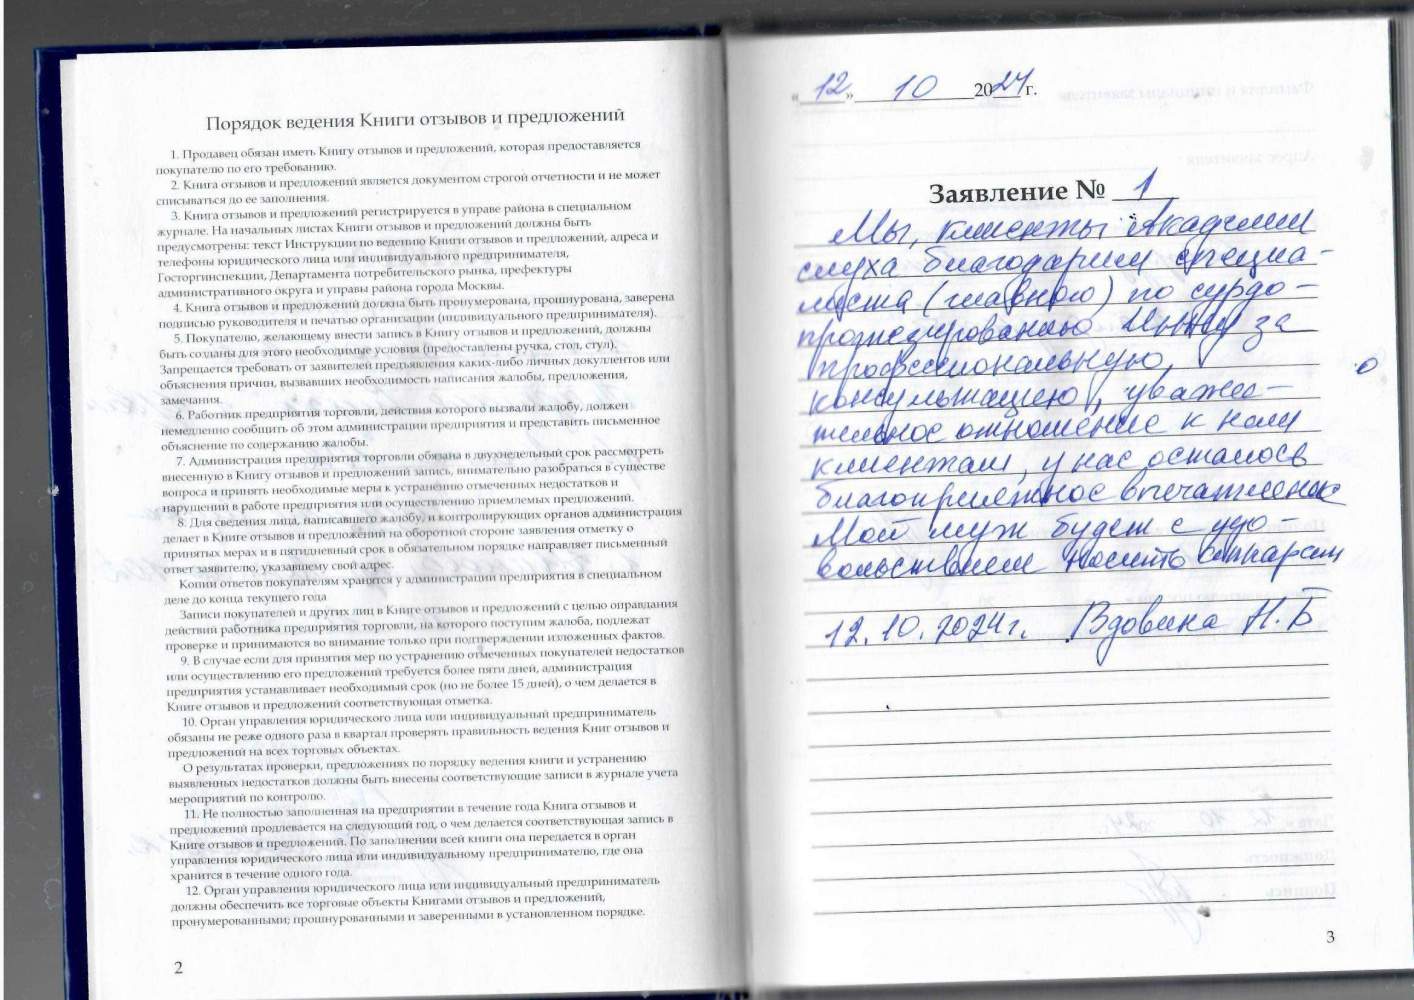 Порядок ведения Книги отзывов и предложений
1. Продавец обязан иметь Книгу отзывов и предложений, которая предоставляется
покупателю по его требованию.
2. Книга отзывов и предложений является документом строгой отчетности и не может
списываться до ее заполнения.
3. Книга отзывов и предложений регистрируется в управе района в специальном
журнале. На начальных листах Книги отзывов и предложений должны быть
предусмотрены: текст Инструкции по ведению Книги отзывов и предложений, адреса и
телефоны юридического лица или индивидуального предпринимателя,
Госторгинспекции, Департамента потребительского рынка, префектуры
административного округа и управы района города Москвы.
4. Книга отзывов и предложений должна быть пронумерована, прошнурована, заверена
подписью руководителя и печатью организации (индивидуального предпринимателя).
5. Покупателю, желающему внести запись в Книгу отзывов и предложений, должны
быть созданы для этого необходимые условия (предоставлены ручка, стол, стул).
Запрещается требовать от заявителей предъявления каких-либо личных докуллентов или
объяснения причин, вызвавших необходимость написания жалобы, предложения,
замечания.
6. Работник предприятия торговли, действия которого вызвали жалобу, должен
немедленно сообщить об этом администрации предприятия и представить письменное
объяснение по содержанию жалобы.
7. Администрация предприятия торговли обязана в двухнедельный срок рассмотреть
внесенную в Книгу отзывов и предложений запись, внимательно разобраться в существе
вопроса и принять необходимые меры к устранению отмеченных недостатков и
нарушений в работе предприятия или осуществлению приемлемых предложений.
8. Для сведения лица, написавшего жалобу, и контролирующих органов администрация
делает в Книге отзывов и предложений на оборотной стороне заявления отметку о
принятых мерах и в пятидневный срок в обязательном порядке направляет письменный
ответ заявителю, указавшему свой адрес.
Копии ответов покупателям хранятся у администрации предприятия в специальном
деле до конца текущего года
Записи покупателей и других лиц в Книге отзывов и предложений с целью оправдания
действий работника предприятия торговли, на которого поступим жалоба, подлежат
проверке и принимаются во внимание только при подтверждении изложенных фактов.
9. В случае если для принятия мер по устранению отмеченных покупателей недостатков
или осуществлению его предложений требуется более пяти дней, администрация
предприятия устанавливает необходимый срок (но не более 15 дней), о чем делается в
Книге отзывов и предложений соответствующая отметка.
10. Орган управления юридического лица или индивидуальный предприниматель
обязаны не реже одного раза в квартал проверять правильность ведения Книг отзывов и
предложений на всех торговых объектах.
О результатах проверки, предложениях по порядку ведения книги и устранению
выявленных недостатков должны быть внесены соответствующие записи в журнале учета
мероприятий по контролю.
11. Не полностью заполненная на предприятии в течение года Книга отзывов и
предложений продлевается на следующий год, о чем делается соответствующая запись в
Книге отзывов и предложений. По заполнении всей книги она передается в орган
управления юридического лица или индивидуальному предпринимателю, где она
хранится в течение одного года.
12. Орган управления юридического лица или индивидуальный предприниматель
должны обеспечить все торговые объекты Книгами отзывов и предложений,
пронумерованными; прошнурованными и заверенными в установленном порядке.
2
«12» 10 2024 г.
Заявление № 1
Мы, клиенты Академии
слуха благодарим специа-
листа (главного) по сурдо-
протезированию Инну за
профессиональную
консультацию, уважи-
тельное отношение к нам
клиентам, у нас осталось
благоприятное впечатление
Мой муж будет с удо-
вольствием носить аппарат
12.10.2024г. Вдовина Н.Б
3